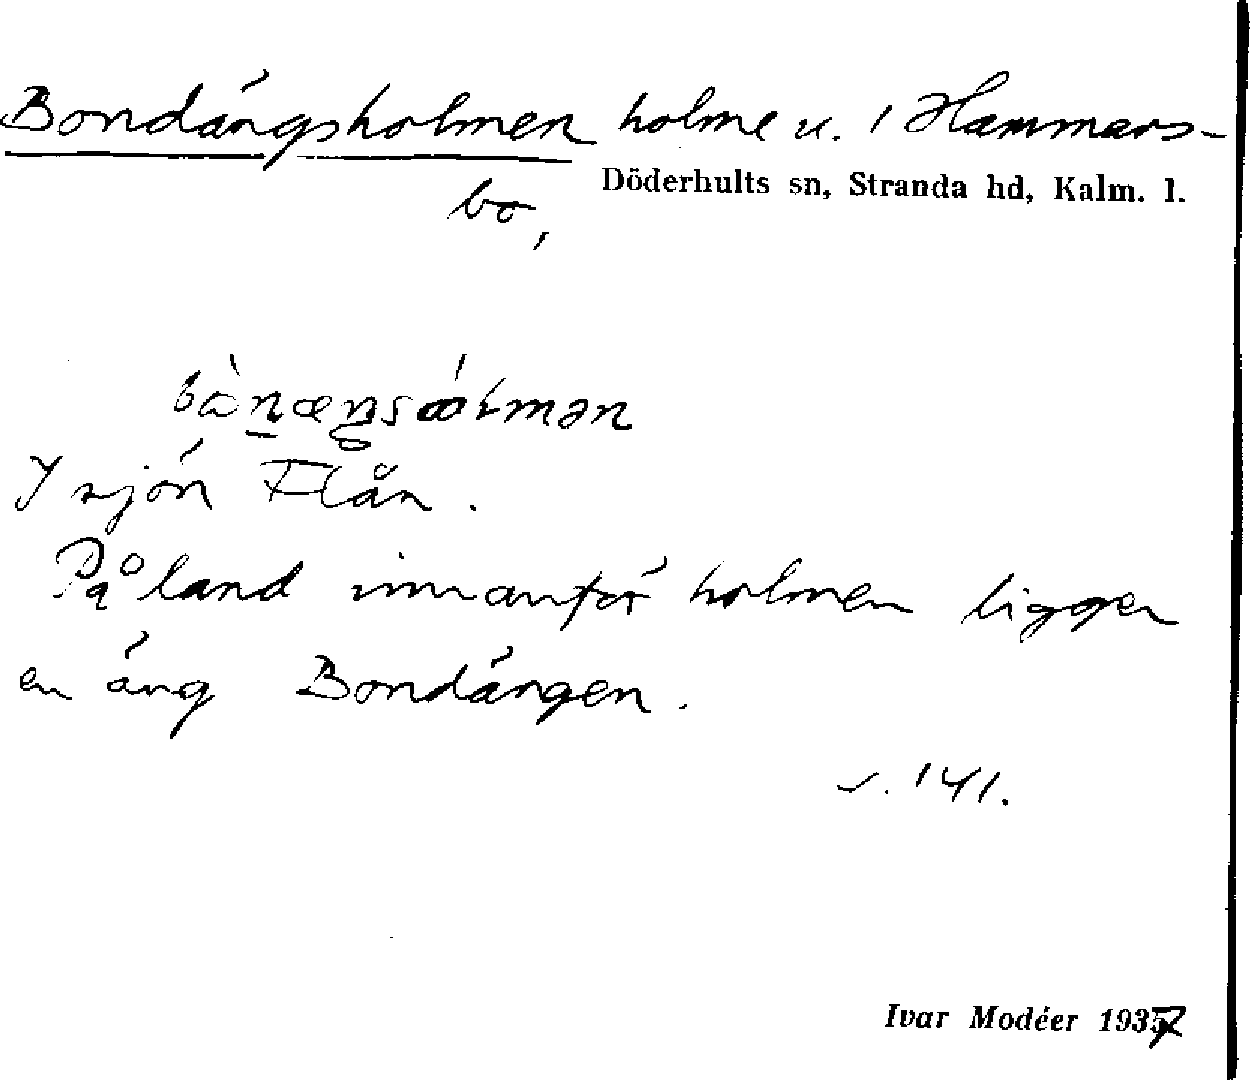 Bondängsholmen holme u. i Hammars-
bo,
Döderhults sn, Stranda hd, Kalm. l.
I sjön Flån.
På land innanför holmen ligger
en äng Bondängen.
s. 141.
Ivar Modéer 1937